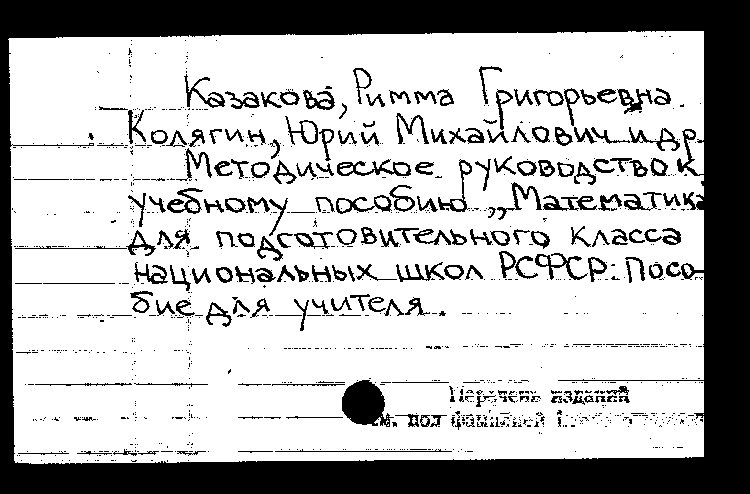 Казакова, Римма Григорьевна.
Колягин, Юрий Михайлович и др.
Методическое руководство к
учебному пособию „Математика
для подготовительного класса
национальных школ РСФСР: Посо-
бие для учителя.
Перечень изданий
см. под фамилией